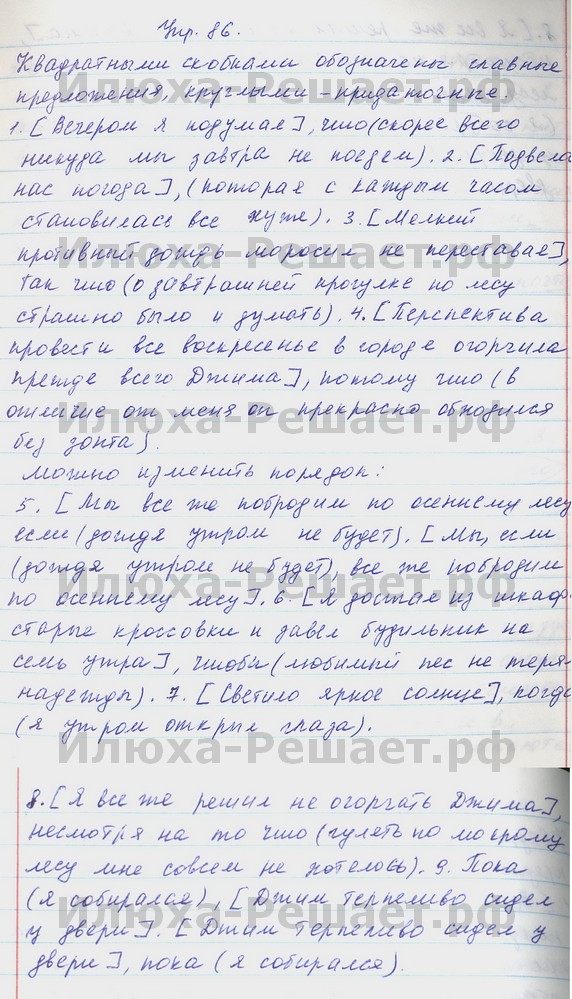 Упр. 86.
Квадратными скобками обозначены главные
предложения, круглыми – придаточные.
1. [Вечером я подумал], что (скорее всего
никуда мы завтра не поедем). 2. [Подвела
нас погода], (которая с каждым часом
становилась все хуже). 3. [Мелкий
противный дождь моросил не переставая],
так что (о завтрашней прогулке по лесу
страшно было и думать). 4. [Перспектива
провести все воскресенье в городе огорчила
прежде всего Джима], потому что (в
отличие от меня он прекрасно обходился
без зонта).
Можно изменить порядок:
5. [Мы все же побродим по осеннему лесу
если (дождя утром не будет). [Мы, если
(дождя утром не будет), все же побродим
по осеннему лесу]. 6. [Я достал из шкафа
старые кроссовки и завел будильник на
семь утра], чтобы (любимый пес не терял
надежды). 7. [Светило яркое солнце], когда
(я утром открыл глаза).
8. [Я все же решил не огорчать Джима],
несмотря на то что (гулять по мокрому
лесу мне совсем не хотелось). 9. Пока
(я собирался), [Джим терпеливо сидел
у двери]. [Джим терпеливо сидел у
двери], пока (я собирался).
Илюха-Решает.рф
Илюха-Решает.рф
Илюха-Решает.рф
Илюха-Решает.рф
Илюха-Решает.рф
Илюха-Решает.рф
Илюха-Решает.рф